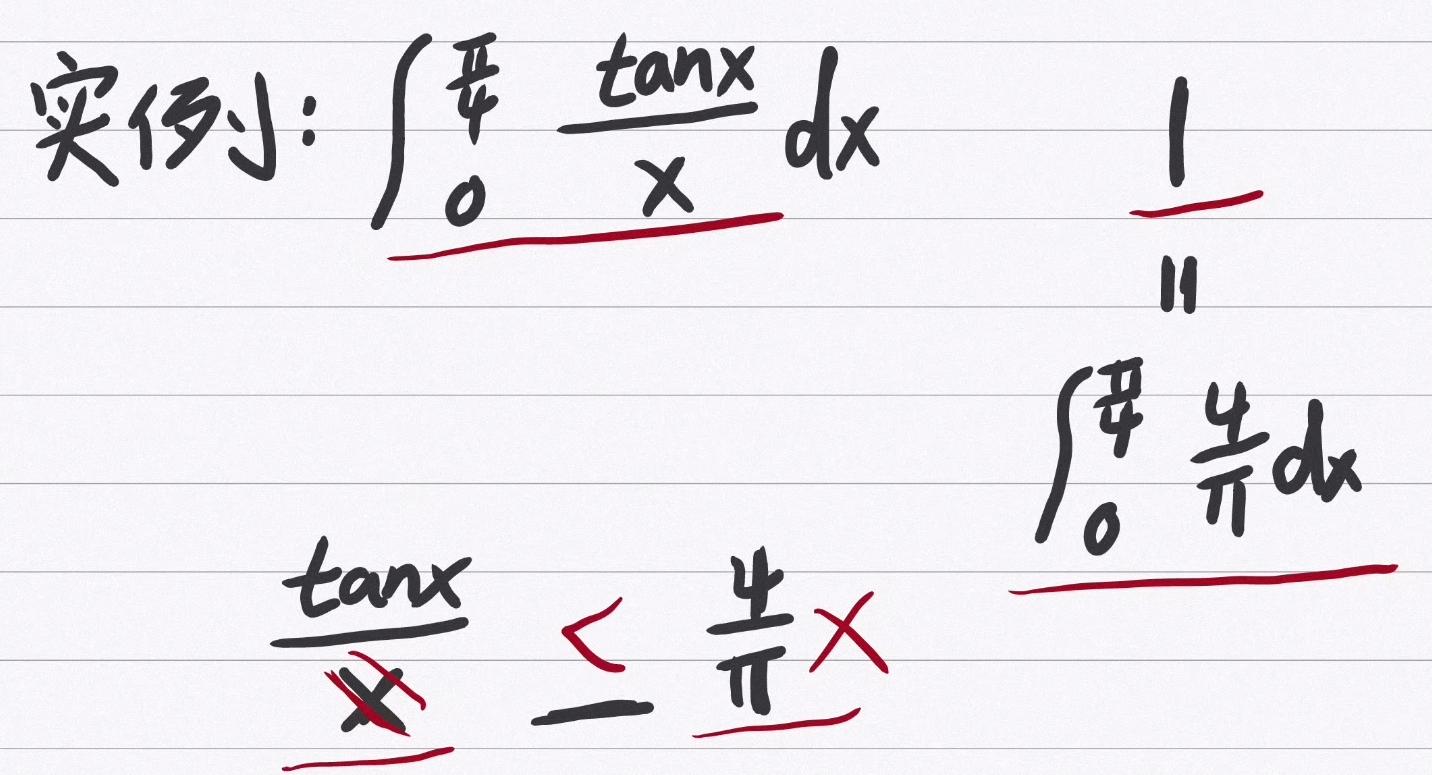 实例: ∫₀^(π/4) tanx/x dx    1
=
∫₀^(π/4) 4/π dx
tanx/x ≤ 4/π x